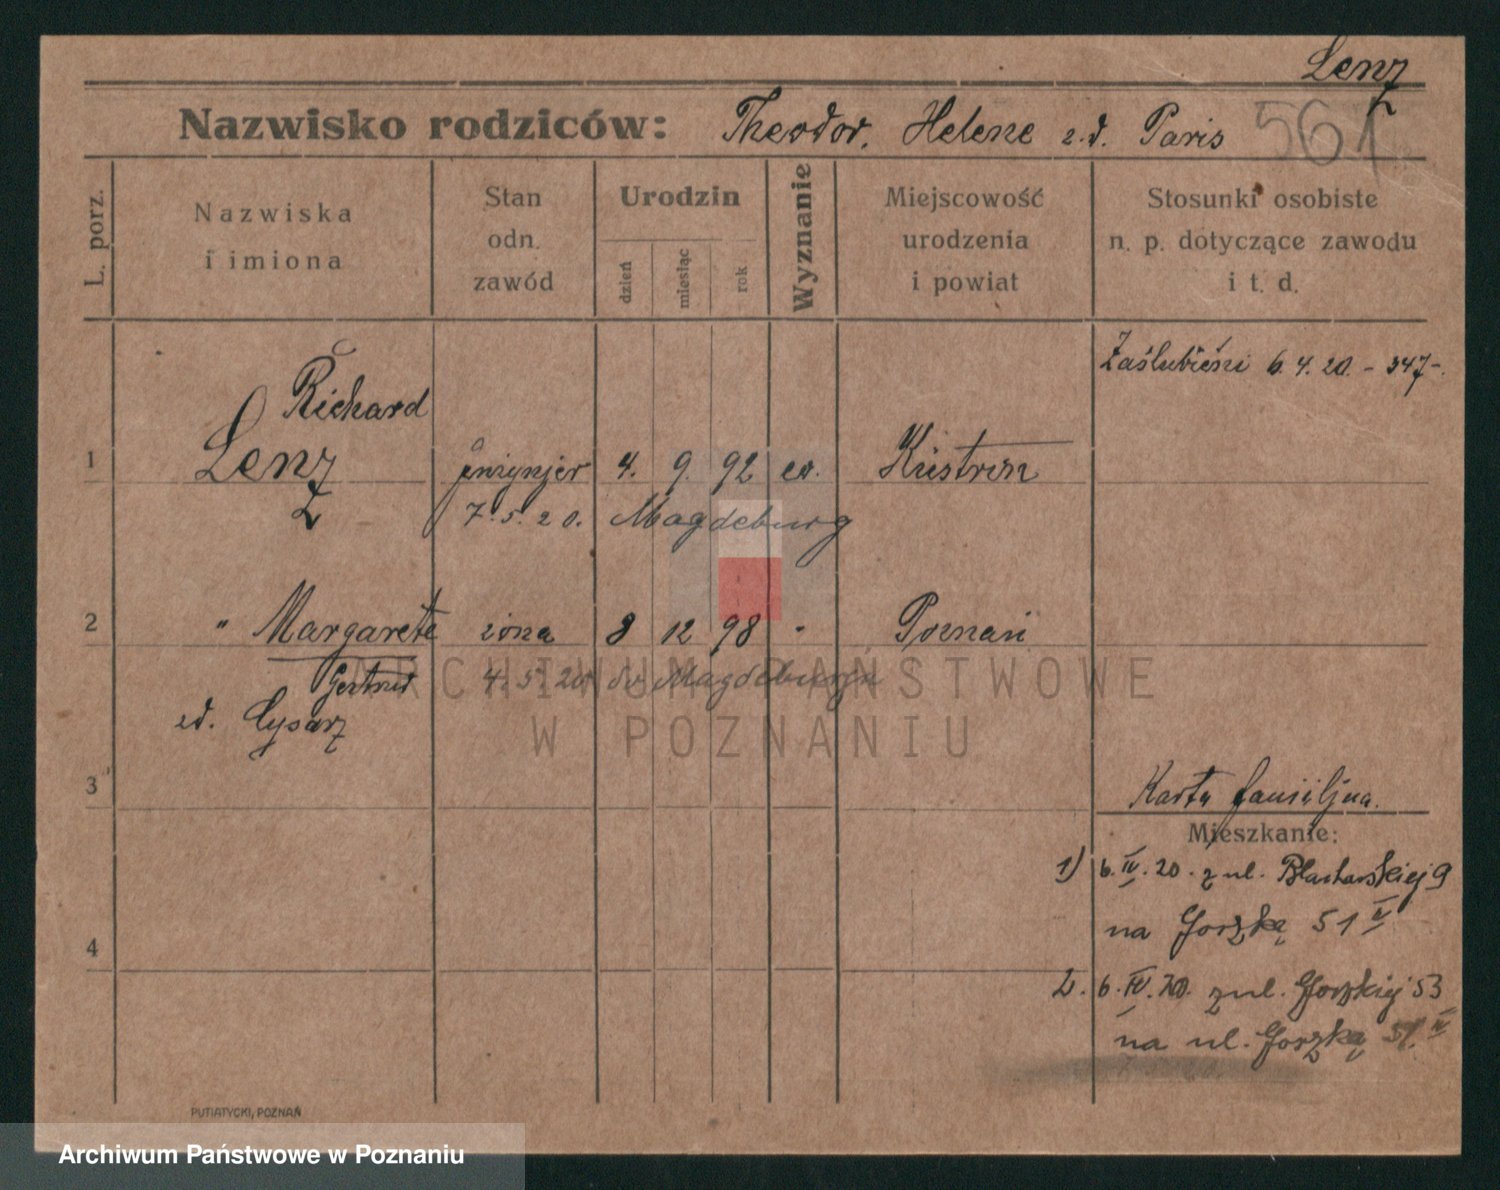 Lenz
Nazwisko rodziców: Theodor, Helene z.d. Paris 561
L. porz.
Nazwiska i imiona
Stan odn. zawód
Urodzin
dzień miesiąc rok
Wyznanie
Miejscowość urodzenia i powiat
Stosunki osobiste n. p. dotyczące zawodu i t. d.
Zaślubieni 6.4.20. - 347-.
Richard
1 Lenz inżynjer 4. 9. 92 ev. Küstrin
7.5.20. Magdeburg
2 " Margarete żona 8 12 98 " Poznań
Gertrud 4.5.20 do Magdeburga
zd. Cysarz
3
Karta familijna.
Mieszkanie:
1) 6.IV.20. z ul. 9
na Gorzką 51 II
4
2. 6.IV.20. z ul. Gorzkiej 53
na ul. Gorzką 51. II
PUTIATYCKI, POZNAŃ
ARCHIWUM PAŃSTWOWE
W POZNANIU
Archiwum Państwowe w Poznaniu